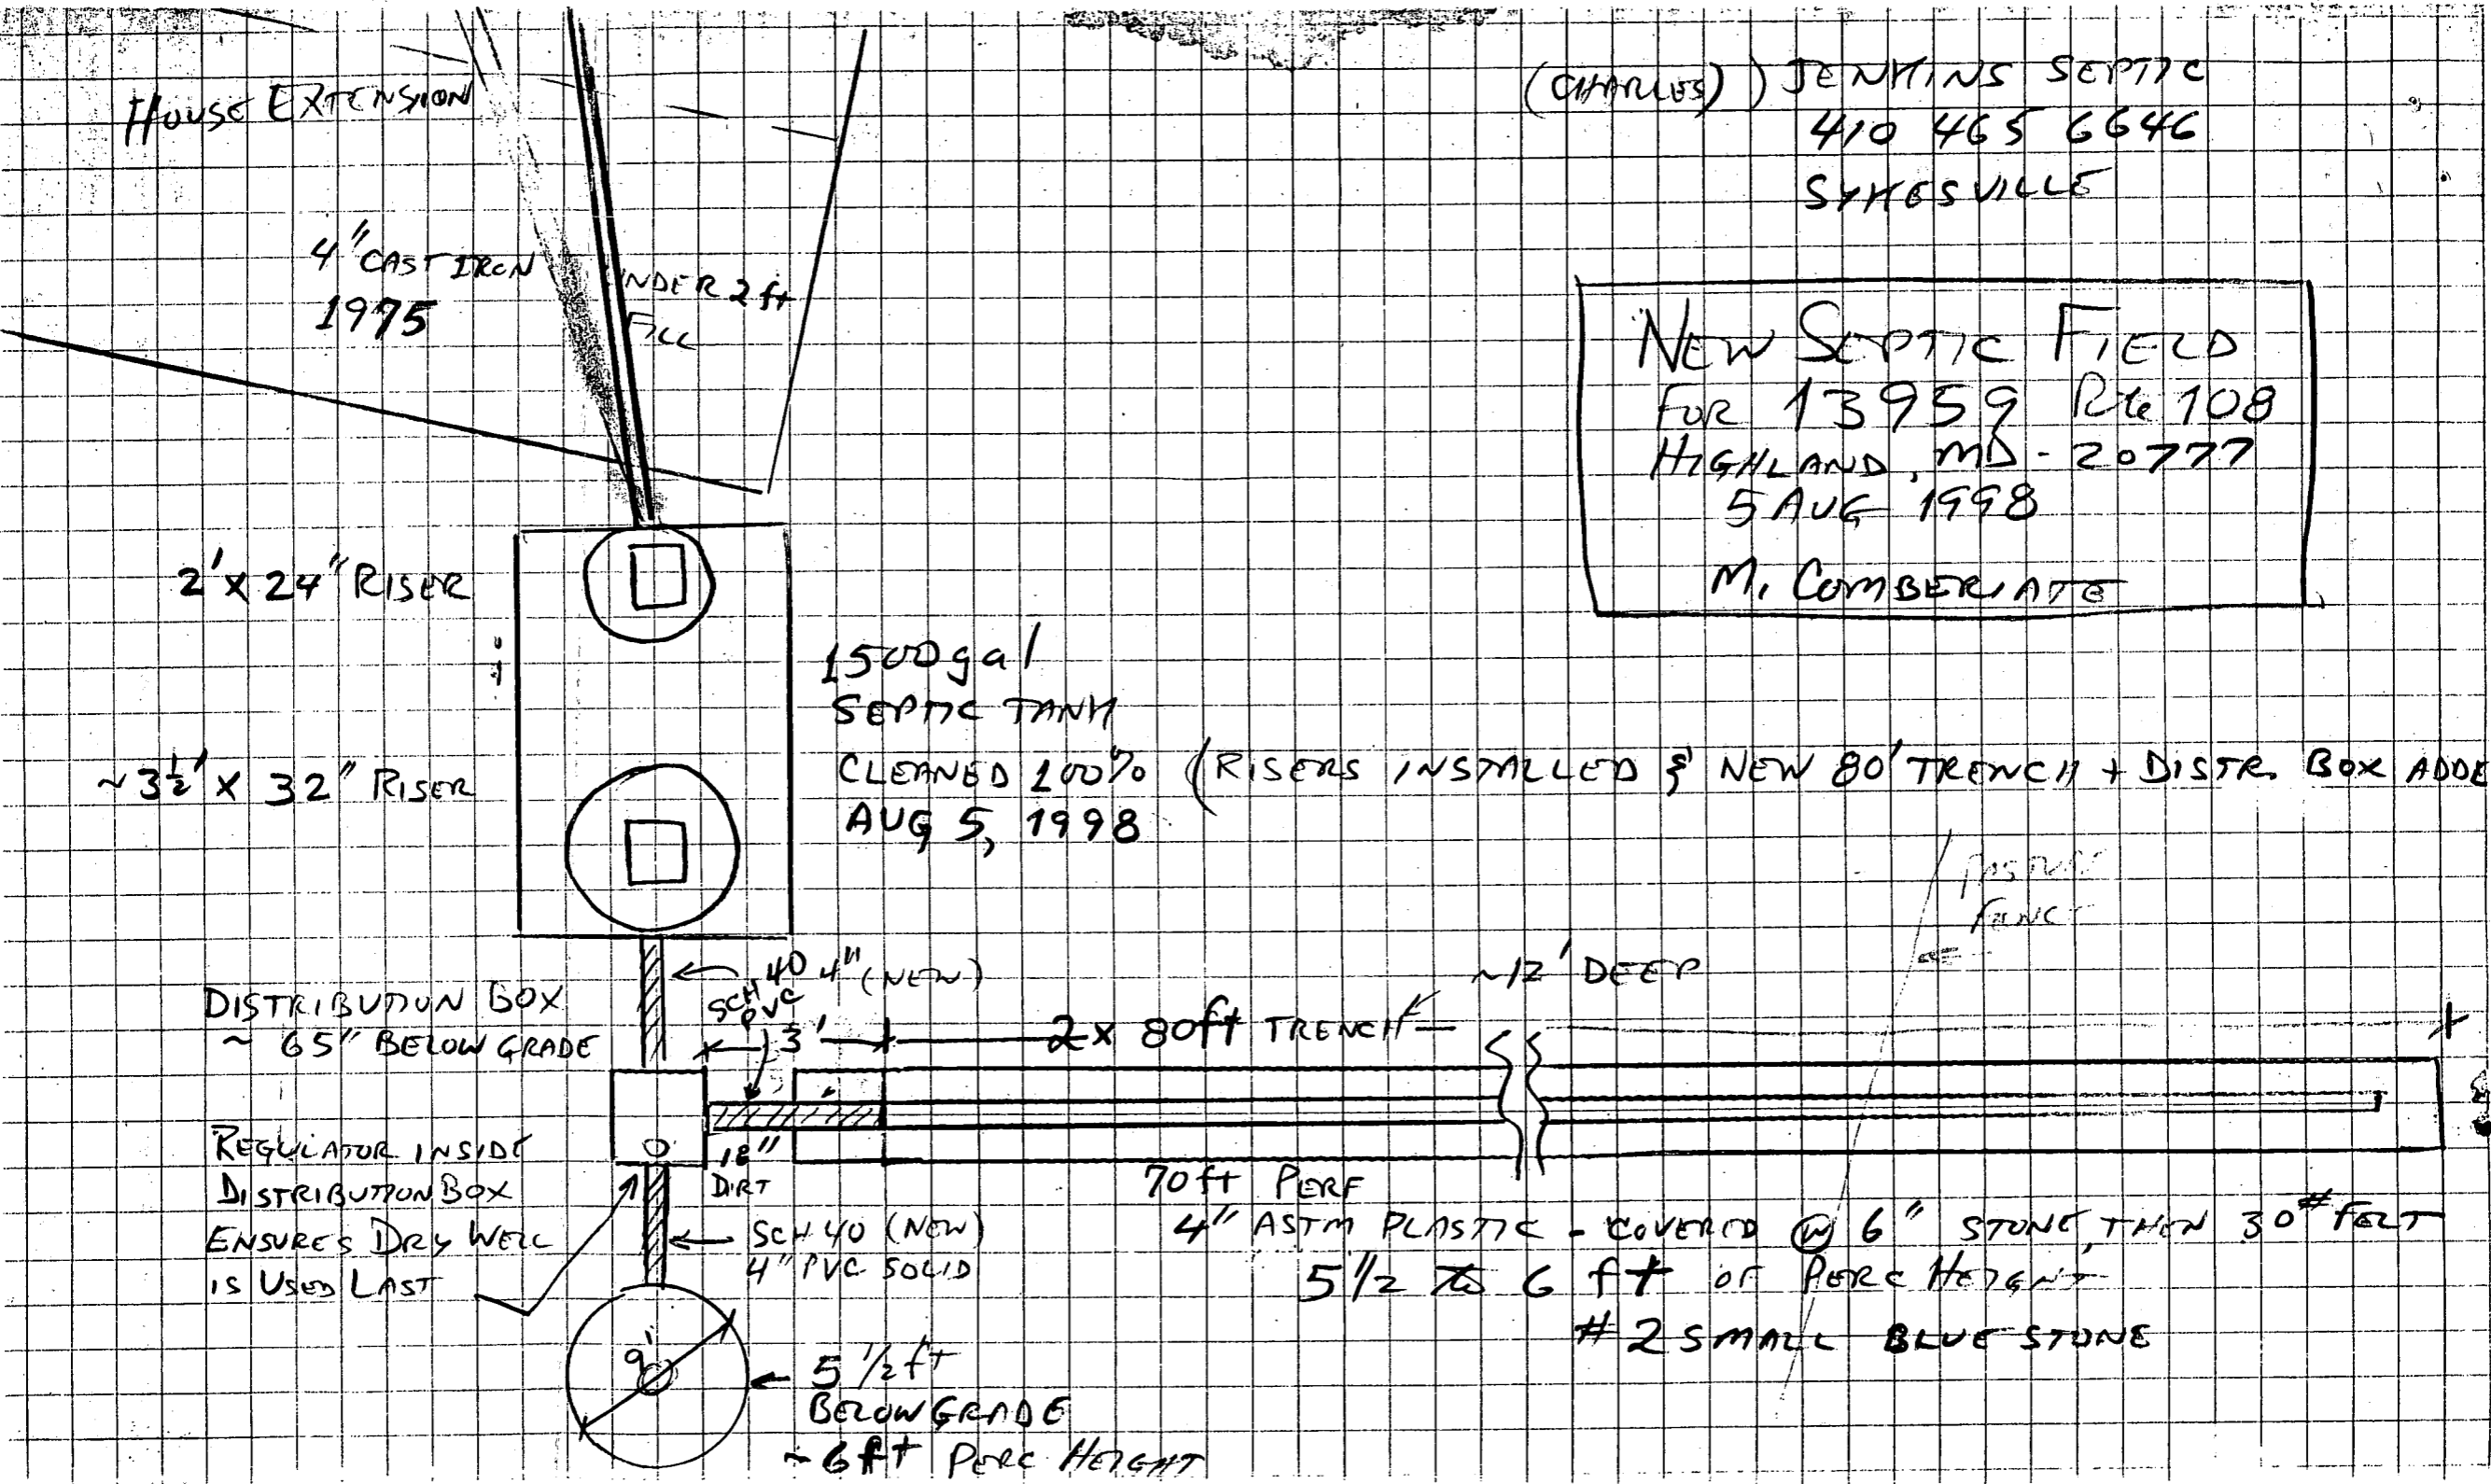 (CHARLES)) JENKINS SEPTIC
410 465 6646
SYKESVILLE
HOUSE EXTENSION
4" CAST IRON
1975
UNDER 2 ft
FILL
NEW SEPTIC FIELD
FOR 13959 Rte 108
HIGHLAND, MD - 20777
5 AUG 1998
M. COMBERIATE
2' x 24" RISER
1500 gal
SEPTIC TANK
CLEANED 100% (RISERS INSTALLED & NEW 80' TRENCH + DISTR. BOX ADDE
AUG 5, 1998
~3½' x 32" RISER
PASTURE
FENCE
SCH 40 4" (NEW)
PVC
~12' DEEP
DISTRIBUTION BOX
~ 65" BELOW GRADE
3'
2 x 80ft TRENCH
REGULATOR INSIDE
DISTRIBUTION BOX
ENSURES DRY WELL
IS USED LAST
18"
DIRT
SCH 40 (NEW)
4" PVC SOLID
70 ft PERF
4" ASTM PLASTIC - COVERED @ 6" STONE, THEN 30# FELT
5 1/2 to 6 ft OF PERC HEIGHT
# 2 SMALL BLUE STONE
9'
5 1/2 ft
BELOW GRADE
~ 6 ft PERC HEIGHT